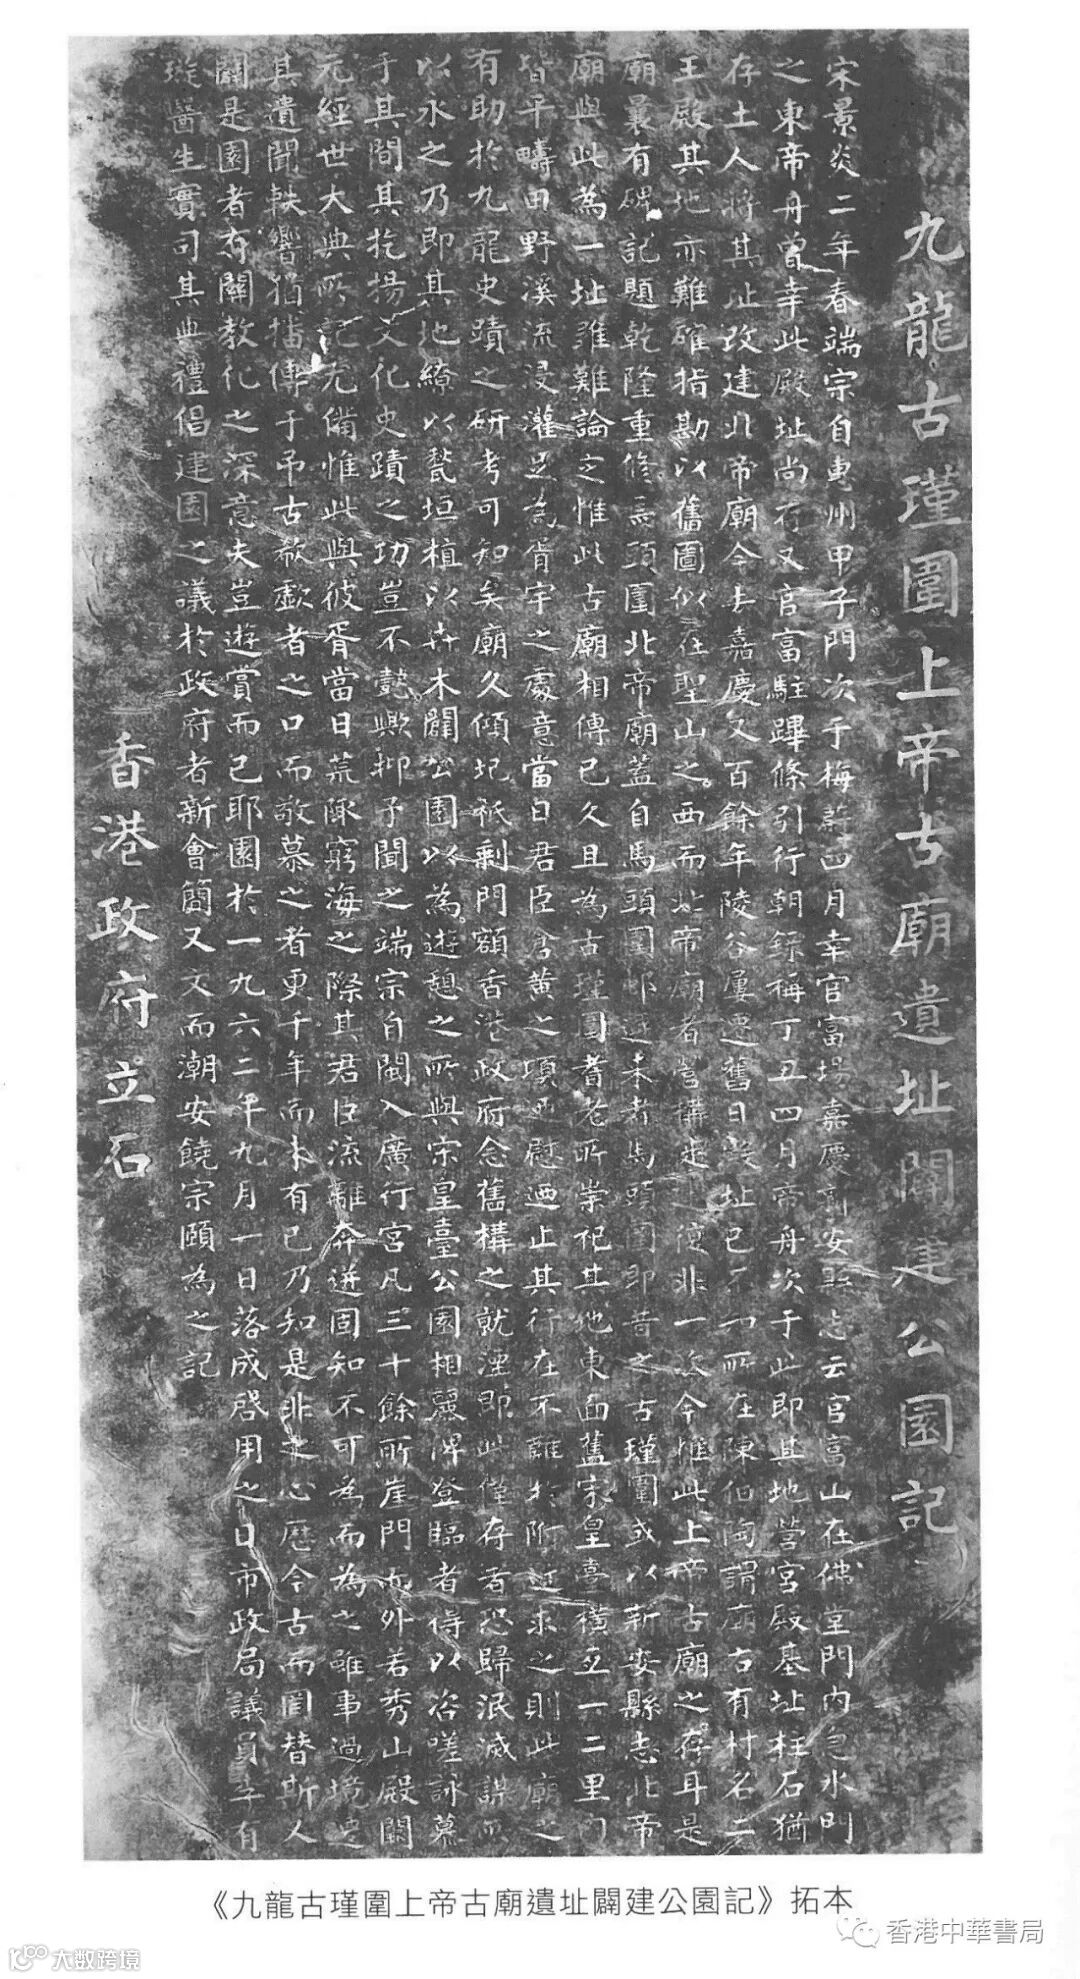 九龍古瑾圍上帝古廟遺址闢建公園記
宋景炎二年春端宗自惠州甲子門次于梅蔚四月幸官富場嘉慶新安縣志云官富山在佛堂門內急水門
之東帝舟曾幸此殿址尚存又官富駐蹕條引行朝錄稱丁丑四月帝舟次于此即其地營宮殿基址柱石猶
存土人將其址改建北帝廟今去嘉慶又百餘年陵谷屢遷舊日殿址已不所在陳伯陶謂廟右有村名二
王殿其地亦難確指勘以舊圖似在聖山之西而北帝廟者營構非一次今惟此上帝古廟之存耳是
廟曩有碑記題乾隆重修馬頭圍北帝廟蓋自馬頭圍邨遷來者馬頭圍即昔之古瑾圍或以新安縣志北帝
廟與此為一址雖難論定惟此古廟相傳已久且為古瑾圍耆老所崇祀其地東面舊宋皇臺橫亙一二里間
皆平疇田野溪流浸灌足為胥宇之處意當日君臣倉黃之頃迺慰迺止其行在不離於附近求之則此廟之
有助於九龍史蹟之研考可知矣廟久傾圮祇剩門額香港政府念舊構之就湮即此僅存者恐歸泯滅謀所
以永之乃即其地繚以甃垣植以卉木闢公園以為遊憩之所與宋皇臺公園相麗俾登臨者得以咨嗟詠慕
于其間其扢揚文化史蹟之功豈不懿歟抑予聞之端宗自閩入廣行宮凡三十餘所崖門而外若秀山殿闕
元經世大典所記尤備惟此與彼胥當日荒陬窮海之際其君臣流離奔迸固知不可為而為之雖事過境遷
其遺聞軼響猶播傳于弔古欷歔者之口而敬慕之者更千年而未有已乃知是非之心歷今古而罔替斯人
闢是園者有關教化之深意夫豈遊賞而已耶園於一九六二年九月一日落成啓用之日市政局議員李有
璇醫生實司其典禮倡建園之議於政府者新會簡又文而潮安饒宗頤為之記
香港政府立石
《九龍古瑾圍上帝古廟遺址闢建公園記》拓本
香港中華書局
大数跨境